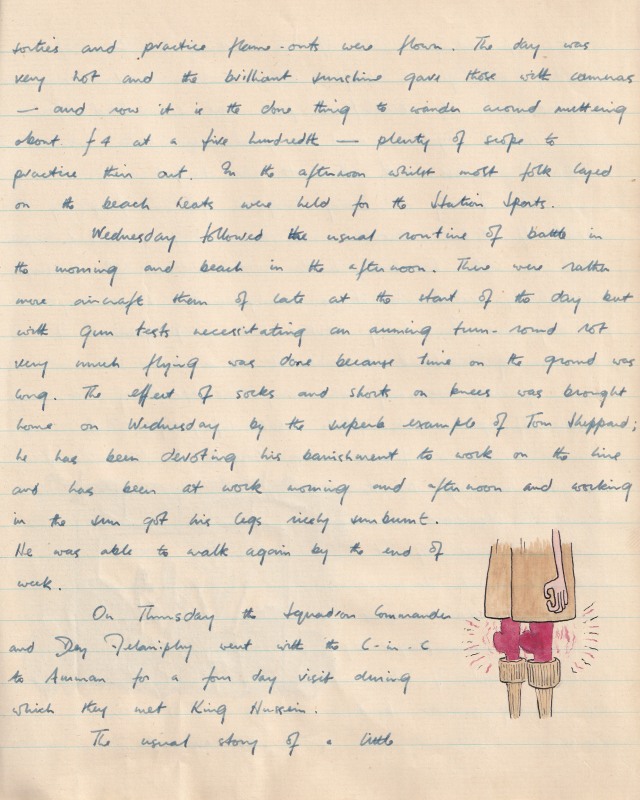 sorties and practice flame-outs were flown. The day was
very hot and the brilliant sunshine gave those with cameras
— and now it is the done thing to wander around muttering
about f4 at a five hundredth — plenty of scope to
practice their art. In the afternoon whilst most folk layed
on the beach heats were held for the Station Sports.
Wednesday followed the usual routine of battle in
the morning and beach in the afternoon. There were rather
more aircraft than of late at the start of the day but
with gun tests necessitating an arming turn-round not
very much flying was done because time on the ground was
long. The effect of socks and shorts on knees was brought
home on Wednesday by the superb example of Tom Sheppard;
he has been devoting his banishment to work on the line
and has been at work morning and afternoon and working
in the sun got his legs nicely sunburnt.
He was able to walk again by the end of
week.
On Thursday the Squadron Commander
and Day went with the C-in-C
to Amman for a four day visit during
which they met King Hussein.
The usual story of a little